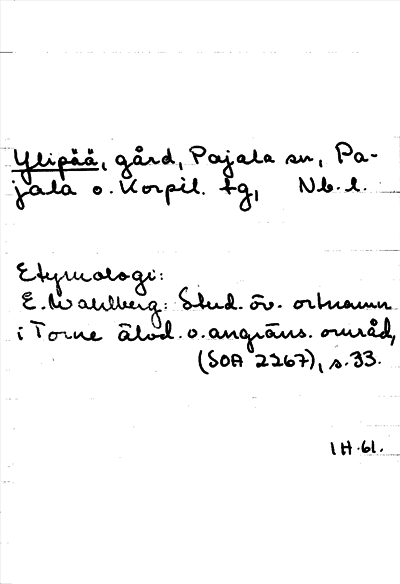 Ylipää, gård, Pajala sn, Pa-
jala o. Korpil. tg, Nb. l.
Etymologi:
E. Wahlberg: Stud. öv. ortnamn
i Torne älvd. o. angräns. områd,
(SOA 2267), s. 33.
IH. 61.